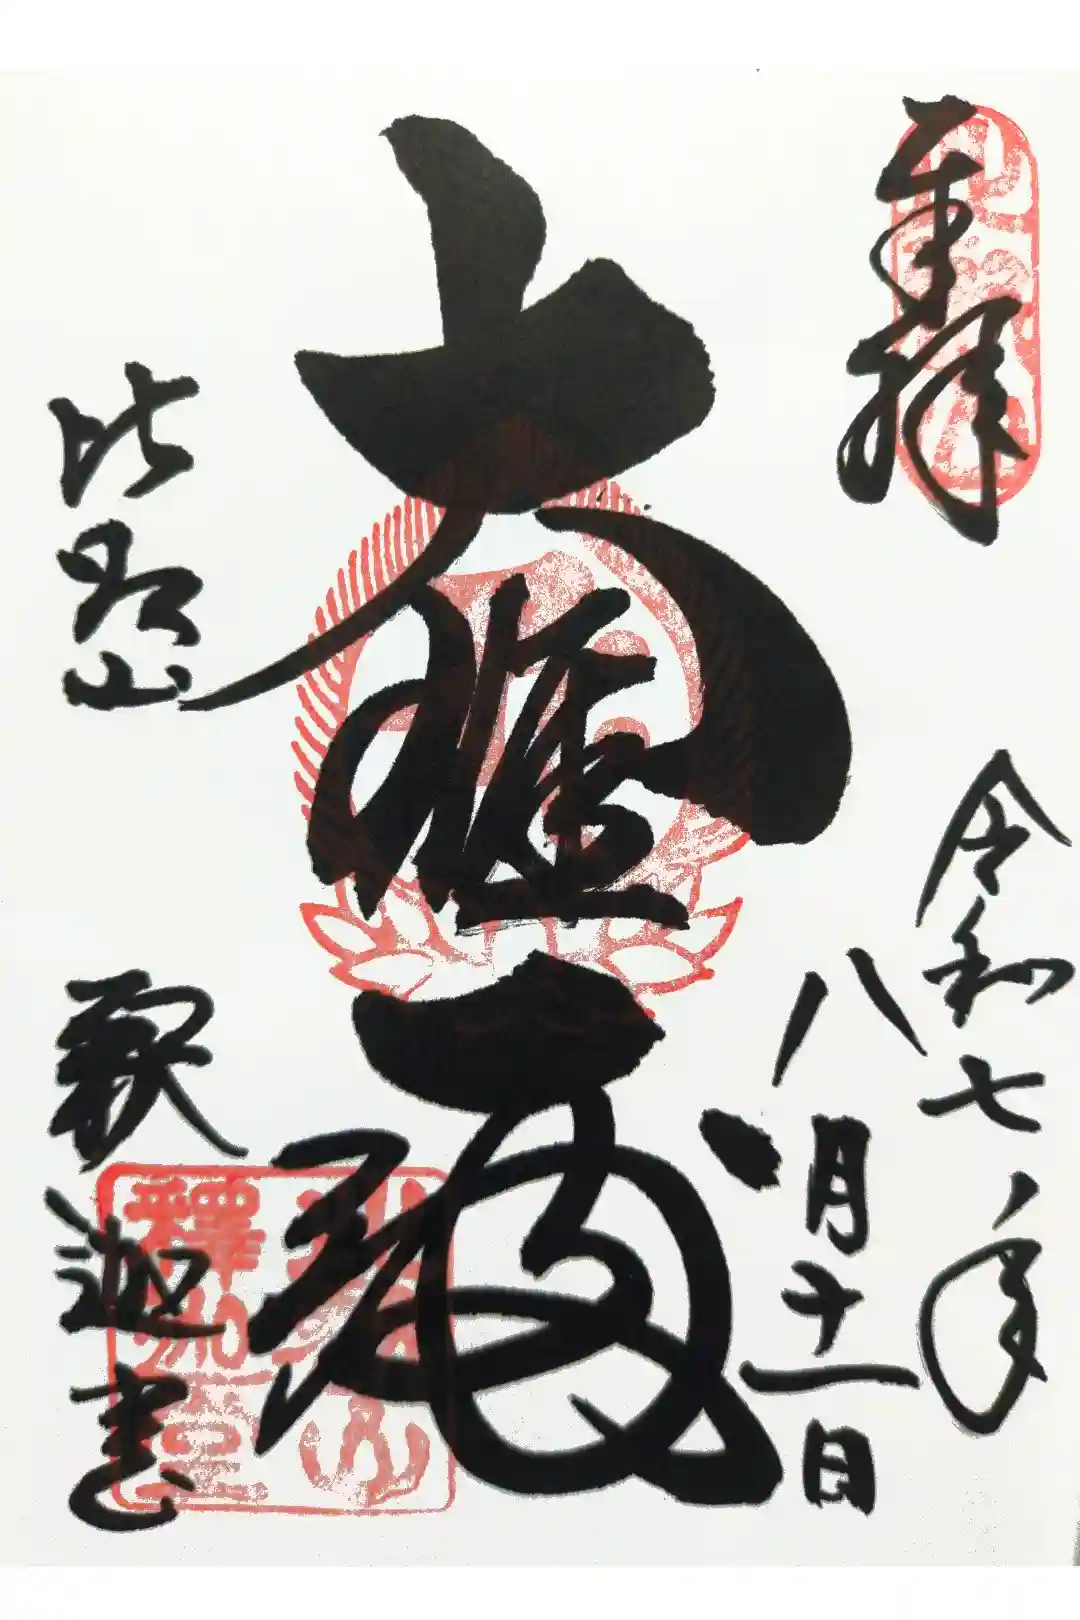 奉拝
令和七年
八月十一日
大雄殿
比叡山
釈迦堂
叡山
釋迦堂